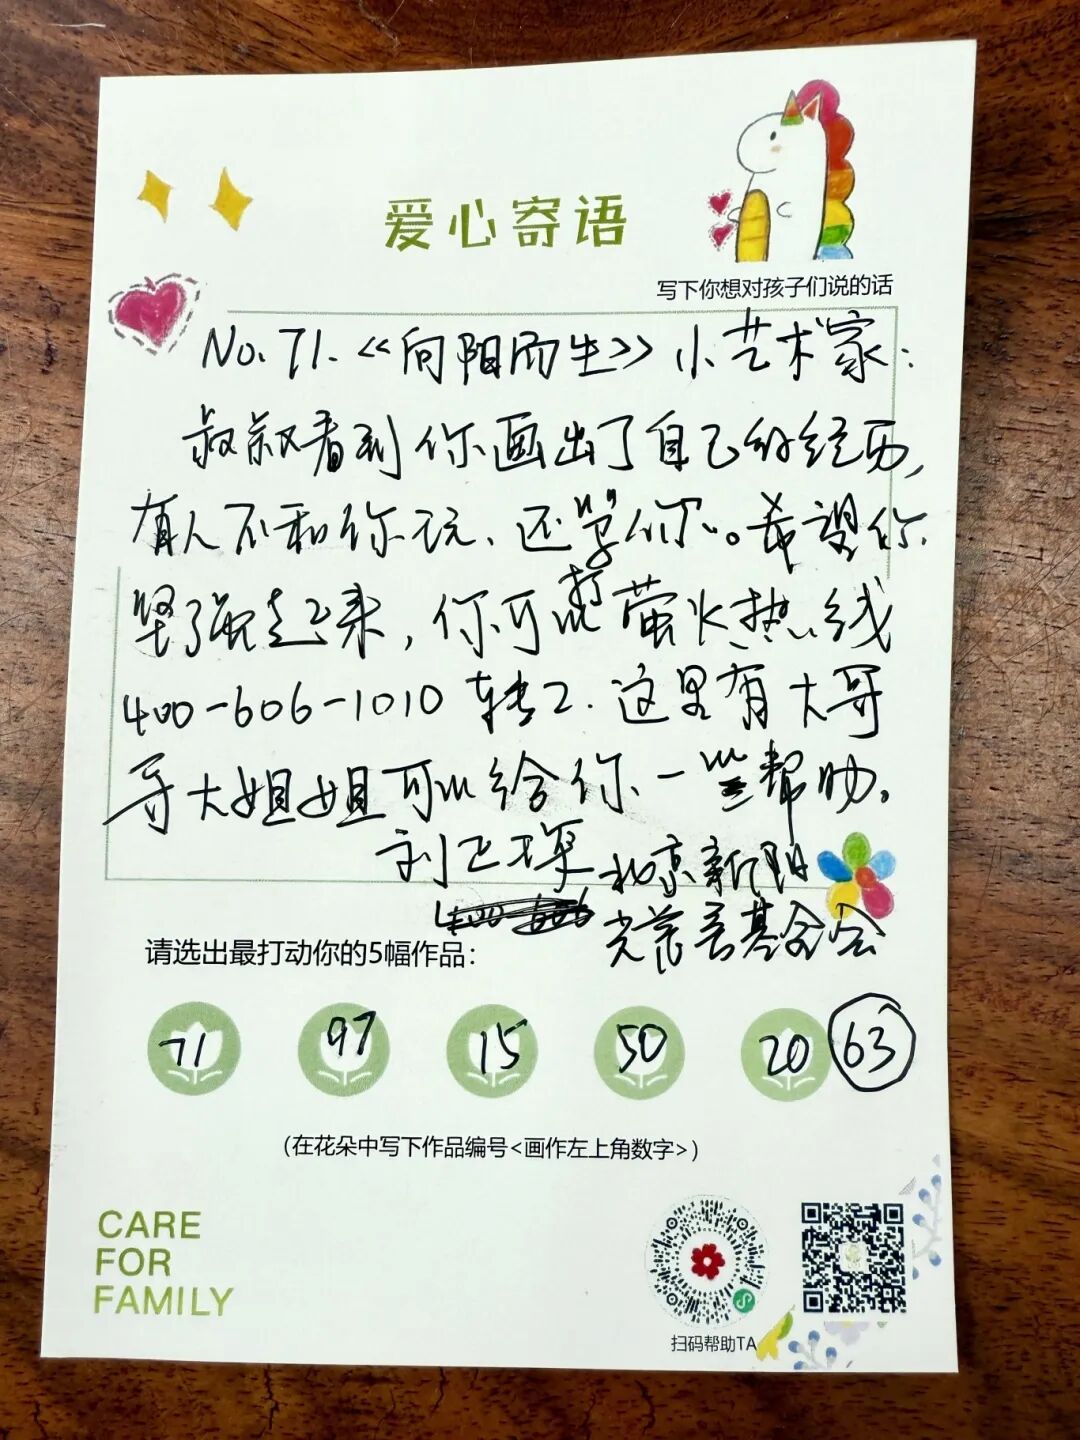 爱心寄语
写下你想对孩子们说的话
No.71.《向阳而生》小艺术家:
叔叔看到你画出了自己的经历,
有人不和你玩、还骂你。希望你
坚强起来,你可以打萤火热线
400-606-1010转2.这里有大哥
哥大姐姐可以给你一些帮助。
刘正琛 北京新阳
光慈善基金会
请选出最打动你的5幅作品:
71 97 15 50 20 63
(在花朵中写下作品编号<画作左上角数字>)
CARE
FOR
FAMILY
扫码帮助TA